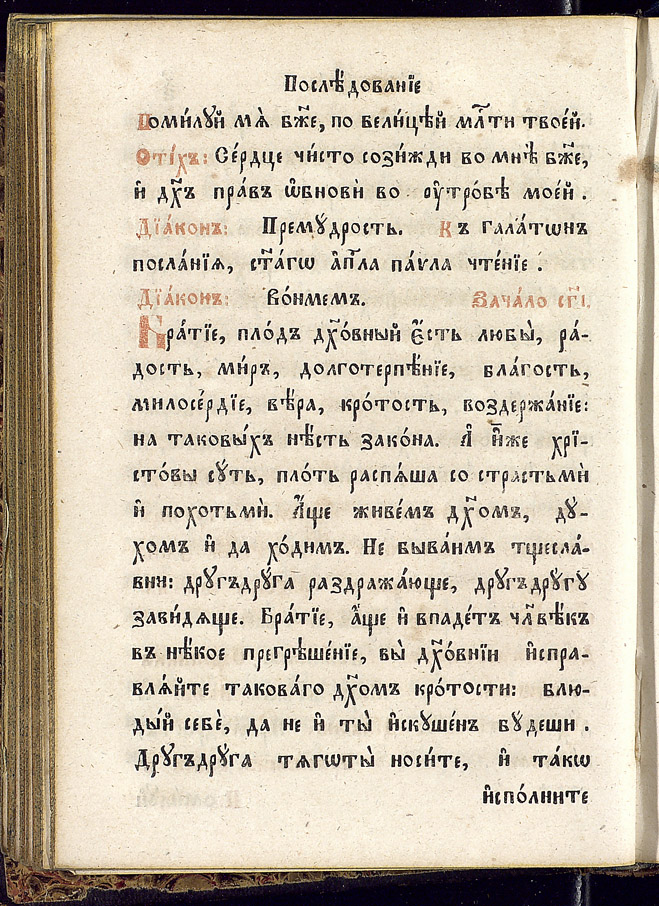 Послѣ́дованїе
Поми́лꙋй мѧ̀ бж҃е, по вели́цѣй мл҇ти твое́й.
Сті́хъ: Се́рдце чи́сто сози́жди во мнѣ̀ бж҃е,
и҆ дх҃ъ пра́въ ѡ҆бновѝ во ᲂу҆тро́бѣ мое́й .
Дїа́конъ: Премꙋ́дрость. Къ гала́тѡнъ
посла́нїѧ, ст҃а́гѡ а҆пⷭ҇ла па́ѵла чте́нїе .
Дїа́конъ: Во́нмемъ. Зача́ло сг҃і.
Бра́тїе, пло́дъ дх҃о́вный є҆́сть любы̀, ра́-
дость, ми́ръ, долготерпѣ́нїе, бла́гость,
милосе́рдїе, вѣ́ра, кро́тость, воздержа́нїе:
на таковы́хъ нѣ́сть зако́на. А҆ и҆̀же хрⷭ҇-
сто́вы сꙋ́ть, пло́ть распѧ́ша со страстьмѝ
и҆ похотьмѝ. А҆́ще живе́мъ дх҃омъ, дꙋ́-
хомъ и҆ да хо́димъ. Не быва́имъ тщесла́-
вни: дрꙋгъдрꙋ́га раздража́юще, дрꙋгъдрꙋ́гꙋ
зави́дѧще. Бра́тїе, а҆́ще и҆ впаде́тъ чл҃вѣ́къ
въ нѣ́кое прегрѣше́нїе, вы̀ дх҃о́внїи и҆спра-
влѧ́йте такова́го дх҃омъ кро́тости: блю-
ды́й себѐ, да не и҆ ты̀ и҆скꙋше́нъ бꙋ́деши .
Дрꙋгъдрꙋ́га тѧгѡты̀ носи́те, и҆ та́кѡ
и҆спо́лните